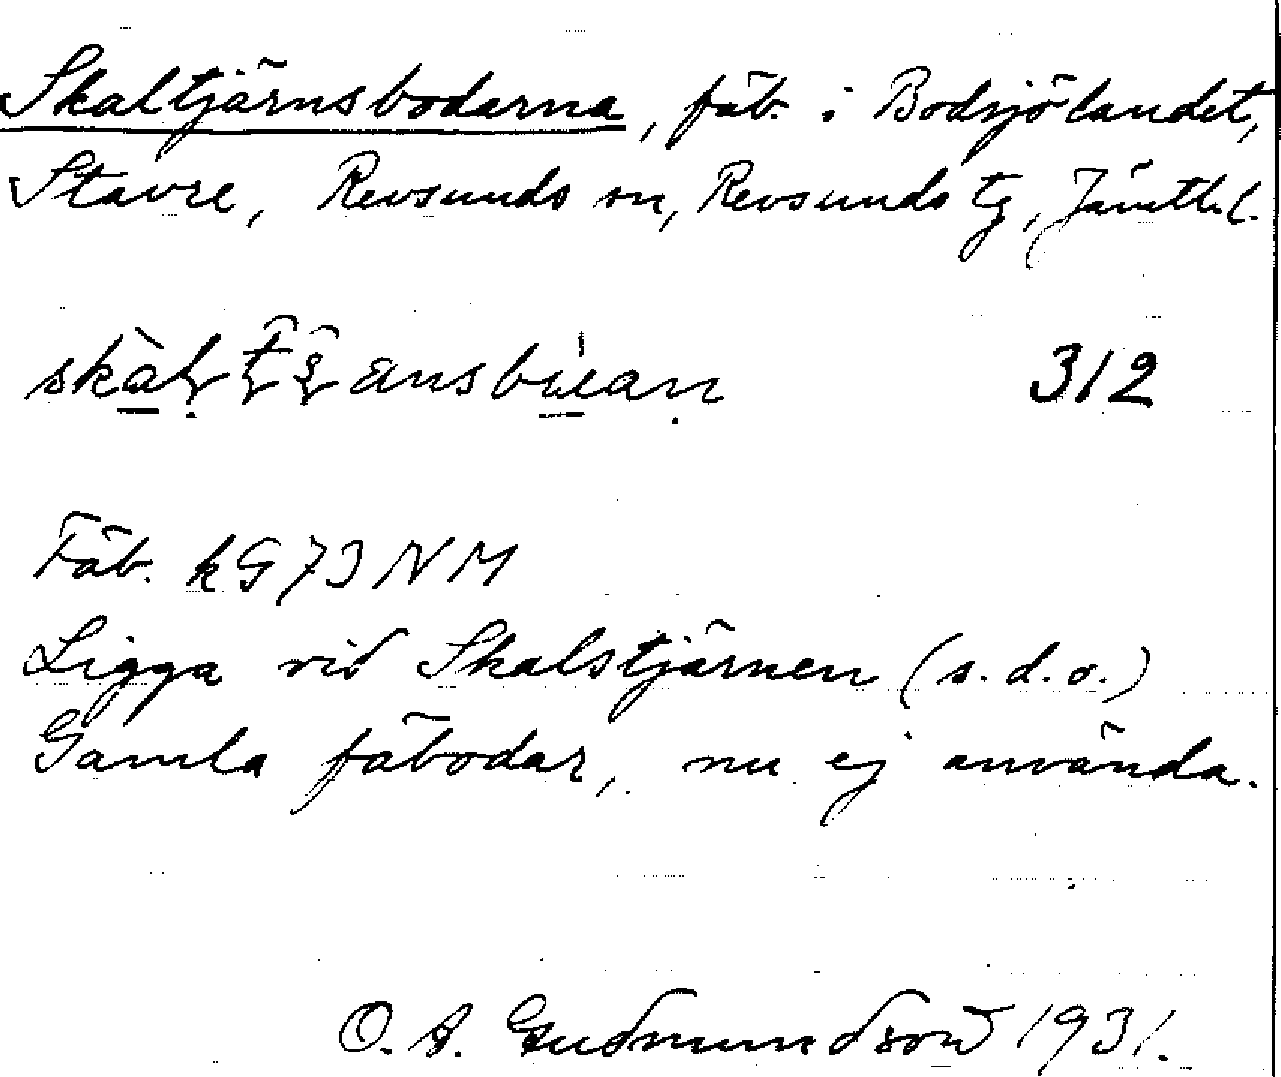 Skaltjärnsbodarna, fäb. i Bodsjölandet,
Stavre, Revsunds sn, Revsunds tg, Jämtl. l.
312
Fäb. kG73NM
Ligga vid Skalstjärnen (s.d.o.)
Gamla fäbodar, nu ej använda.
O. A. Gudmundson 1931.